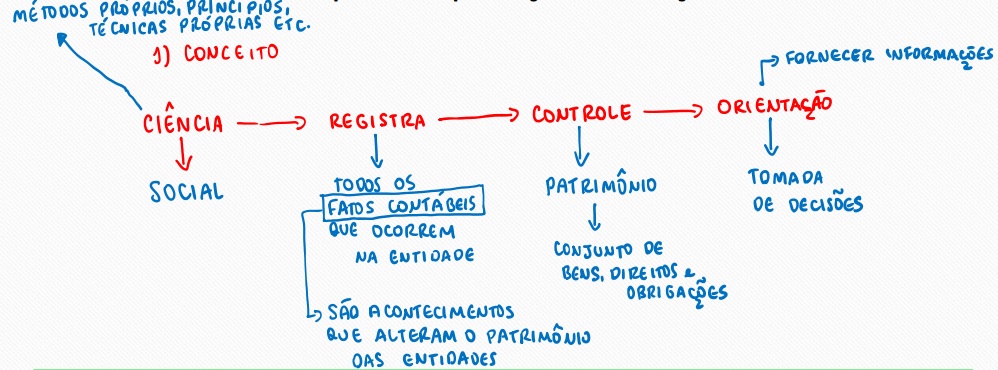 MÉTODOS PRÓPRIOS, PRINCÍPIOS,
TÉCNICAS PRÓPRIAS ETC.
1) CONCEITO
FORNECER INFORMAÇÕES
CIÊNCIA → REGISTRA → CONTROLE → ORIENTAÇÃO
SOCIAL
TODOS OS
FATOS CONTÁBEIS
QUE OCORREM
NA ENTIDADE
SÃO ACONTECIMENTOS
QUE ALTERAM O PATRIMÔNIO
DAS ENTIDADES
PATRIMÔNIO
CONJUNTO DE
BENS, DIREITOS e
OBRIGAÇÕES
TOMADA
DE DECISÕES